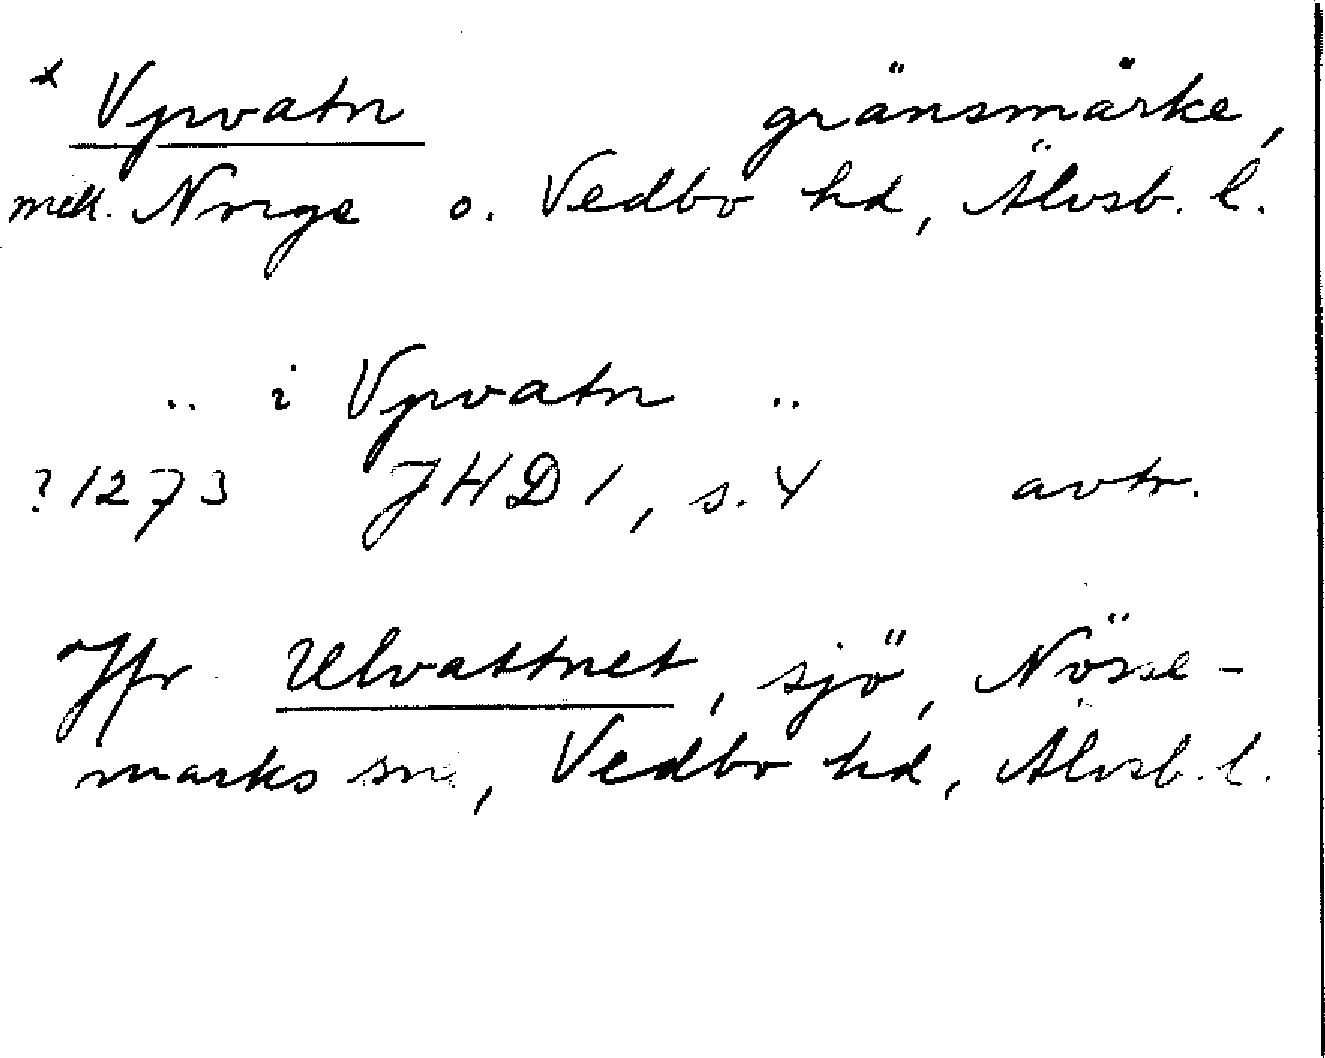 * Vpvatn gränsmärke,
mell. Norge o. Vedbo hd, Älvsb. l.
.. i Vpvatn ..
? 1273 JHD 1, s. 4 avtr.
Jfr Ulvattnet, sjö, Nösse-
marks sn, Vedbo hd, Älvsb. l.